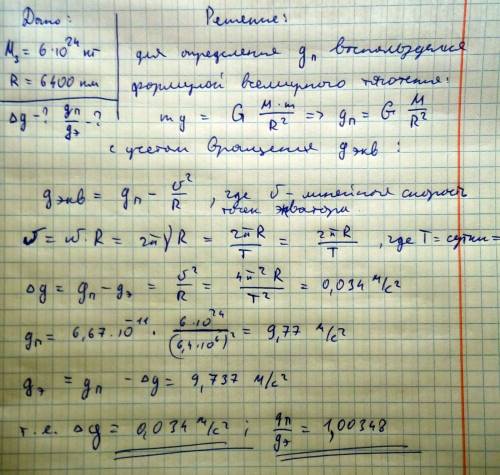 Дано:
M₃ = 6·10²⁴ кг
R = 6400 км
Δg - ? gп/gэ - ?
Решение:
для определения gп воспользуемся
формулой всемирного тяготения:
mg = G M·m/R² => gп = G M/R²
с учетом вращения gэкв:
gэкв = gп - υ²/R, где υ - линейная скорость
точек экватора.
υ = ω·R = 2πνR = 2πR/T = 2πR/T, где T = сутки =
Δg = gп - gэ = υ²/R = 4π²R/T² = 0,034 м/с²
gп = 6,67·10⁻¹¹ · 6·10²⁴/(6,4·10⁶)² = 9,77 м/с²
gэ = gп - Δg = 9,737 м/с²
т.е. Δg = 0,034 м/с²; gп/gэ = 1,00348